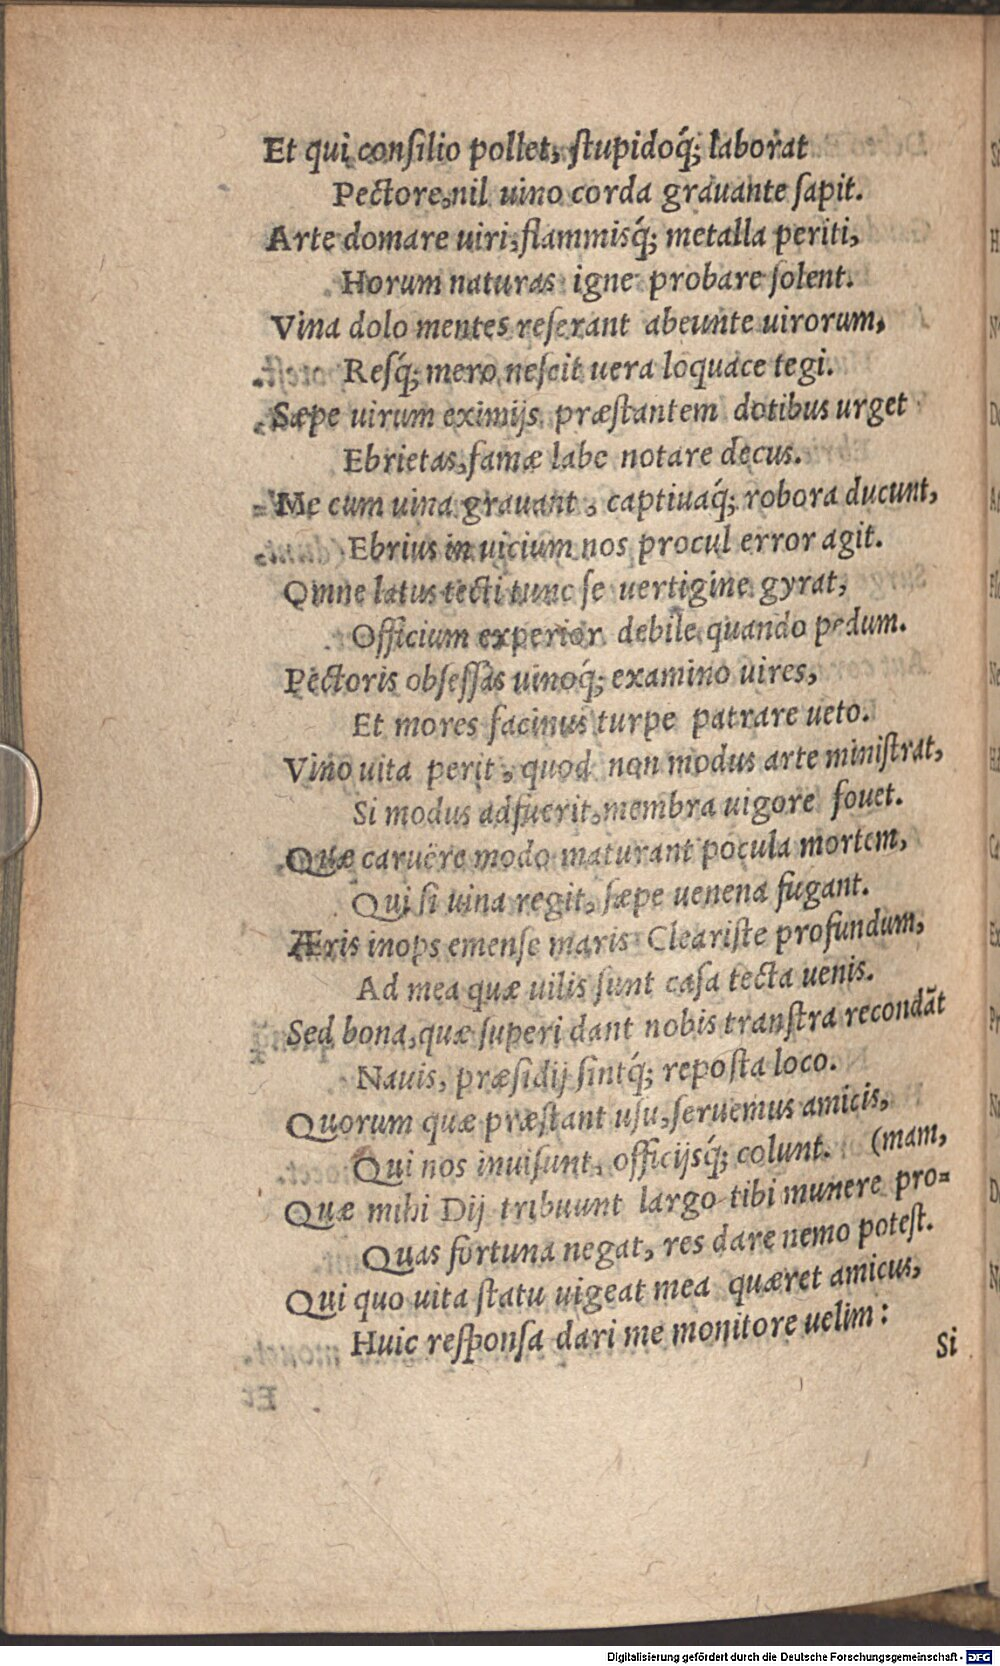 Et qui consilio pollet, stupidoq́; laborat
Pectore, nil uino corda grauante sapit.
Arte domare uiri, flammisq́; metalla periti,
Horum naturas igne probare solent.
Vina dolo mentes reserant abeunte uirorum,
Resq́; mero nescit uera loquace tegi.
Sæpe uirum eximijs præstantem dotibus urget
Ebrietas, famæ labe notare decus.
Me cum uina grauant, captiuaq́; robora ducunt,
Ebrius in uicium nos procul error agit.
Omne latus tecti tunc se uertigine gyrat,
Officium experior debile quando pedum.
Pectoris obsessas uinoq́; examino uires,
Et mores facinus turpe patrare ueto.
Vino uita perit, quod non modus arte ministrat,
Si modus adfuerit, membra uigore fouet.
Quæ caruere modo maturant pocula mortem,
Qui si uina regit, sæpe uenena fugant.
Æris inops emense maris Cleariste profundum,
Ad mea quæ uilis sunt casa tecta uenis.
Sed bona, quæ superi dant nobis transtra recondãt
Nauis, præsidij sintq́; reposta loco.
Quorum quæ præstant usu, seruemus amicis,
Qui nos inuisunt, officijsq́; colunt. (mam,
Quæ mihi Dij tribuunt largo tibi munere pro-
Quas fortuna negat, res dare nemo potest.
Qui quo uita statu uigeat mea quæret amicus,
Huic responsa dari me monitore uelim:
Si
Digitalisierung gefördert durch die Deutsche Forschungsgemeinschaft - DFG